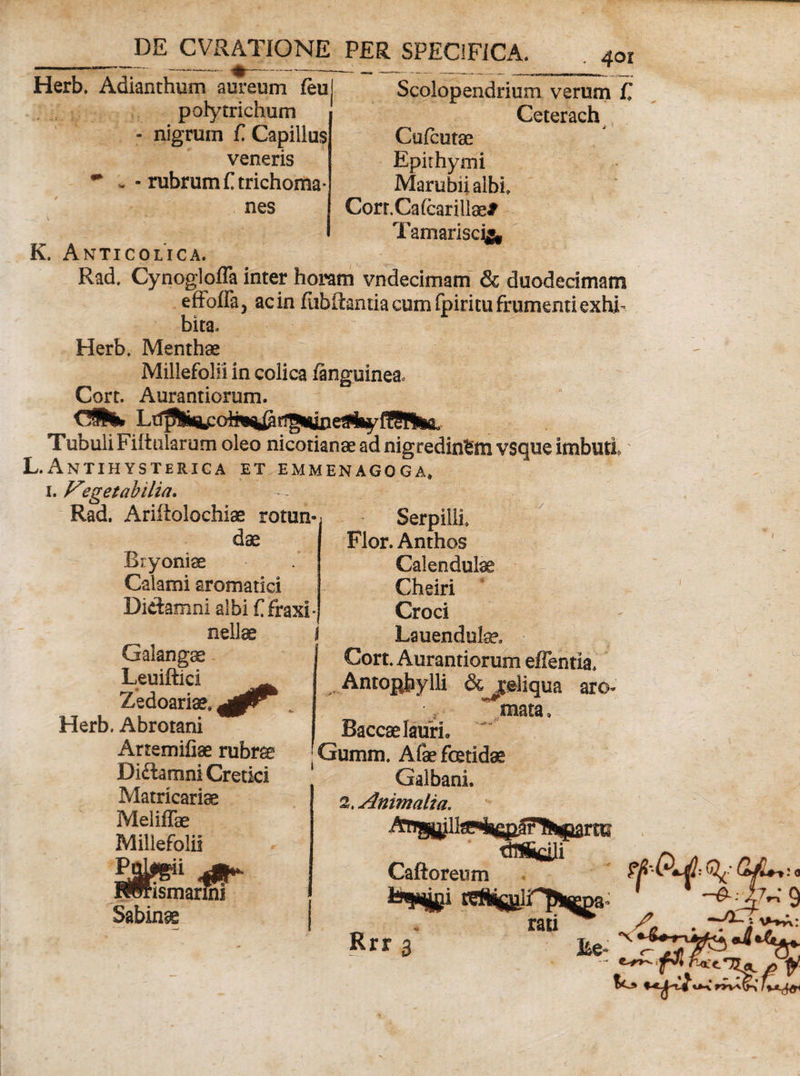 DE CVRATIONE PER SPECIFICA. 401
Herb. Adianthum aureum ſeu
polytrichum
- nigrum ſ. Capillus
veneris
- - rubrum ſ. trichoma-
nes
Scolopendrium verum ſ.
Ceterach
Cuſcutæ
Epithymi
Marubii albi.
Corr. Caſcarillæ
Tamarisci
K. ANTICOLICA.
Rad. Cynogloſſa inter horam vndecimam & duodecimam
effoſſa, ac in ſubſtantia cum ſpiritu frumenti exhi-
bita.
Herb. Menthæ
Millefolii in colica ſanguinea.
Cort. Aurantiorum.
Tubuli Fiſtularum oleo nicotianæ ad nigredinem vsque imbuti.
L. ANTIHYSTERICA ET EMMENAGOGA.
1. Vegetabilia.
Rad. Ariſtolochiæ rotun-
dæ
Bryoniæ
Calami aromatici
Dictamni albi ſ. fraxi-
nellæ
Galangæ
Leuiſtici
Zedoariæ.
Herb. Abrotani
Artemiſiæ rubræ
Dictamni Cretici
Matricariæ
Meliſſæ
Millefolii
Pulegii
Rorismarini
Sabinæ
Serpilli.
Flor. Anthos
Calendulæ
Cheiri
Croci
Lauendulæ.
Cort. Aurantiorum eſſentia.
Antophylli & reliqua aro-
mata.
Baccæ lauri.
Gumm. Aſæ fœtidæ
Galbani.
2. Animalia.
Anguillæ hepar in partu
difficili
Caſtoreum
præpa-
rati
Rrr 3